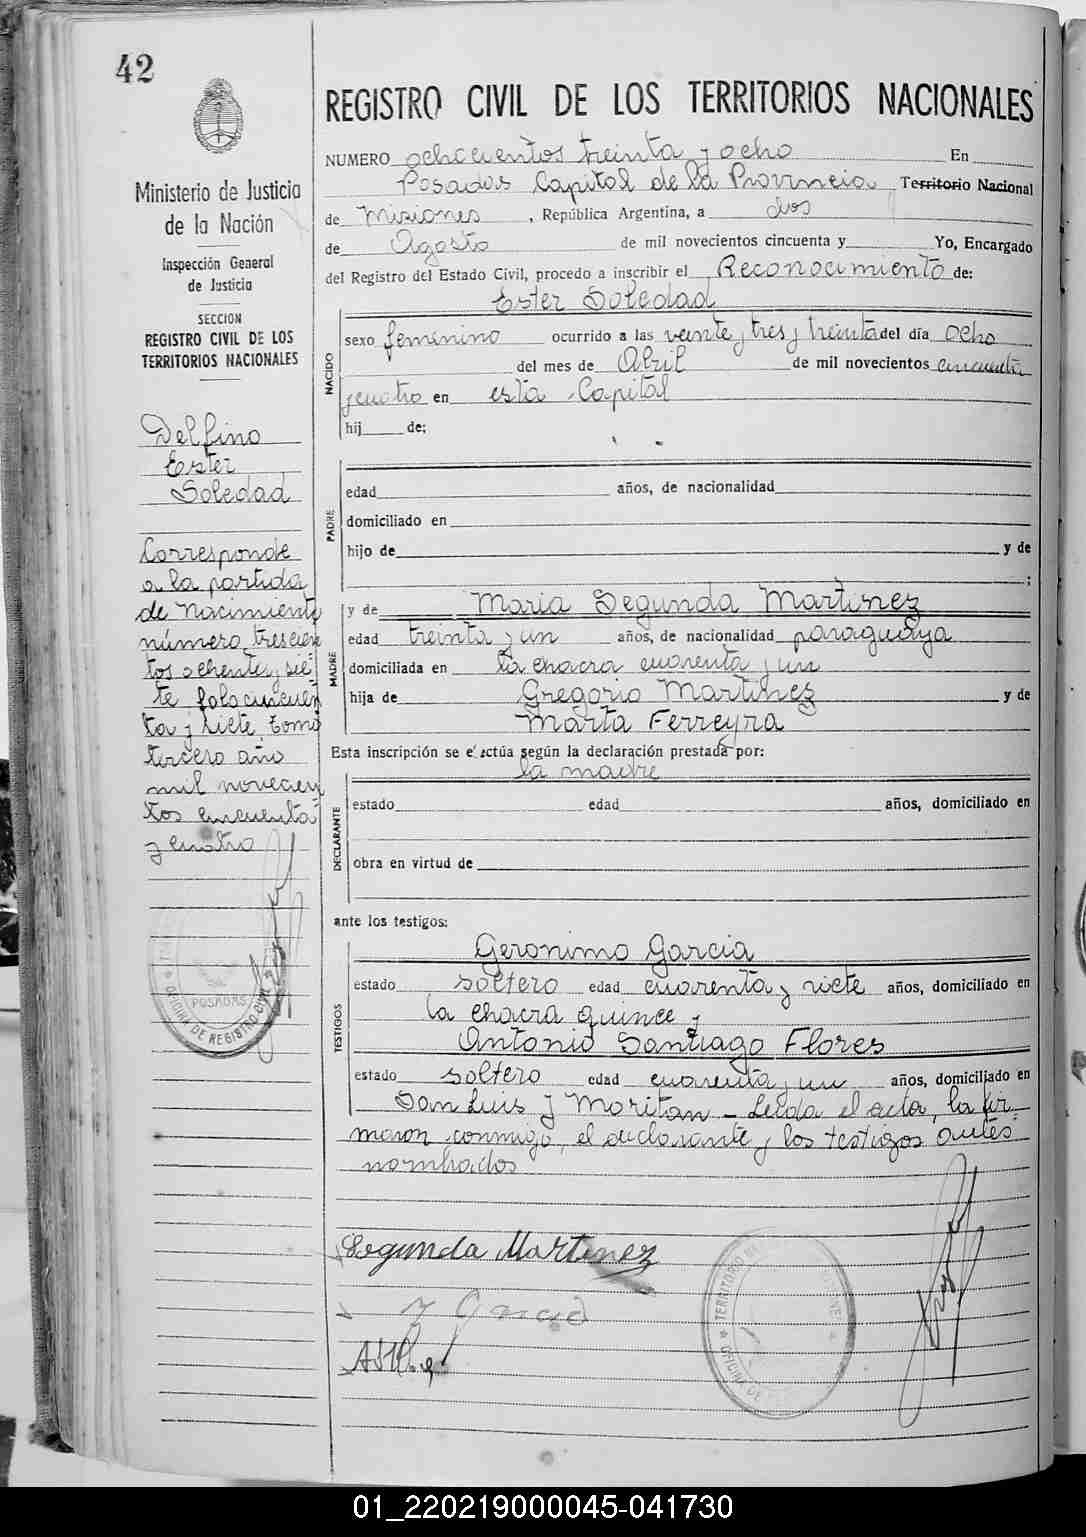 42
Ministerio de Justicia
de la Nación
Inspección General
de Justicia
SECCION
REGISTRO CIVIL DE LOS
TERRITORIOS NACIONALES
Delfino
Ester
Soledad
Corresponde
a la partida
de nacimiento
número trescien
tos ochenta y sie
te folo cincuen
ta y siete tomo
tercero año
mil novecien
tos cincuenta
y cuatro
POSADAS
OFICINA DE REGISTRO CIVIL
REGISTRO CIVIL DE LOS TERRITORIOS NACIONALES
NUMERO ochocientos treinta y ocho En
Posadas Capital de la Provincia Territorio Nacional
de Misiones, República Argentina, a dos
de Agosto de mil novecientos cincuenta y Yo, Encargado
del Registro del Estado Civil, procedo a inscribir el Reconocimiento de:
Ester Soledad
NACIDO
sexo femenino ocurrido a las veinte y tres y treinta del día ocho
del mes de Abril de mil novecientos cincuenta
y cuatro en esta Capital
hij de:
PADRE
edad años, de nacionalidad
domiciliado en
hijo de y de
;
MADRE
y de Maria Segunda Martinez
edad treinta y un años, de nacionalidad paraguaya
domiciliada en la chacra cuarenta y un
hija de Gregorio Martinez y de
Marta Ferreyra
Esta inscripción se efectúa según la declaración prestada por:
la madre
DECLARANTE
estado edad años, domiciliado en
obra en virtud de
ante los testigos:
TESTIGOS
Geronimo Garcia
estado soltero edad cuarenta y siete años, domiciliado en
la chacra quince y
Antonio Santiago Flores
estado soltero edad cuarenta y un años, domiciliado en
San Luis y Moritan - Leida el acta, la fir
maron conmigo, el declarante y los testigos antes
nombrados
Segunda Martinez
TERRITORIO
OFICINA DE
01_220219000045-041730